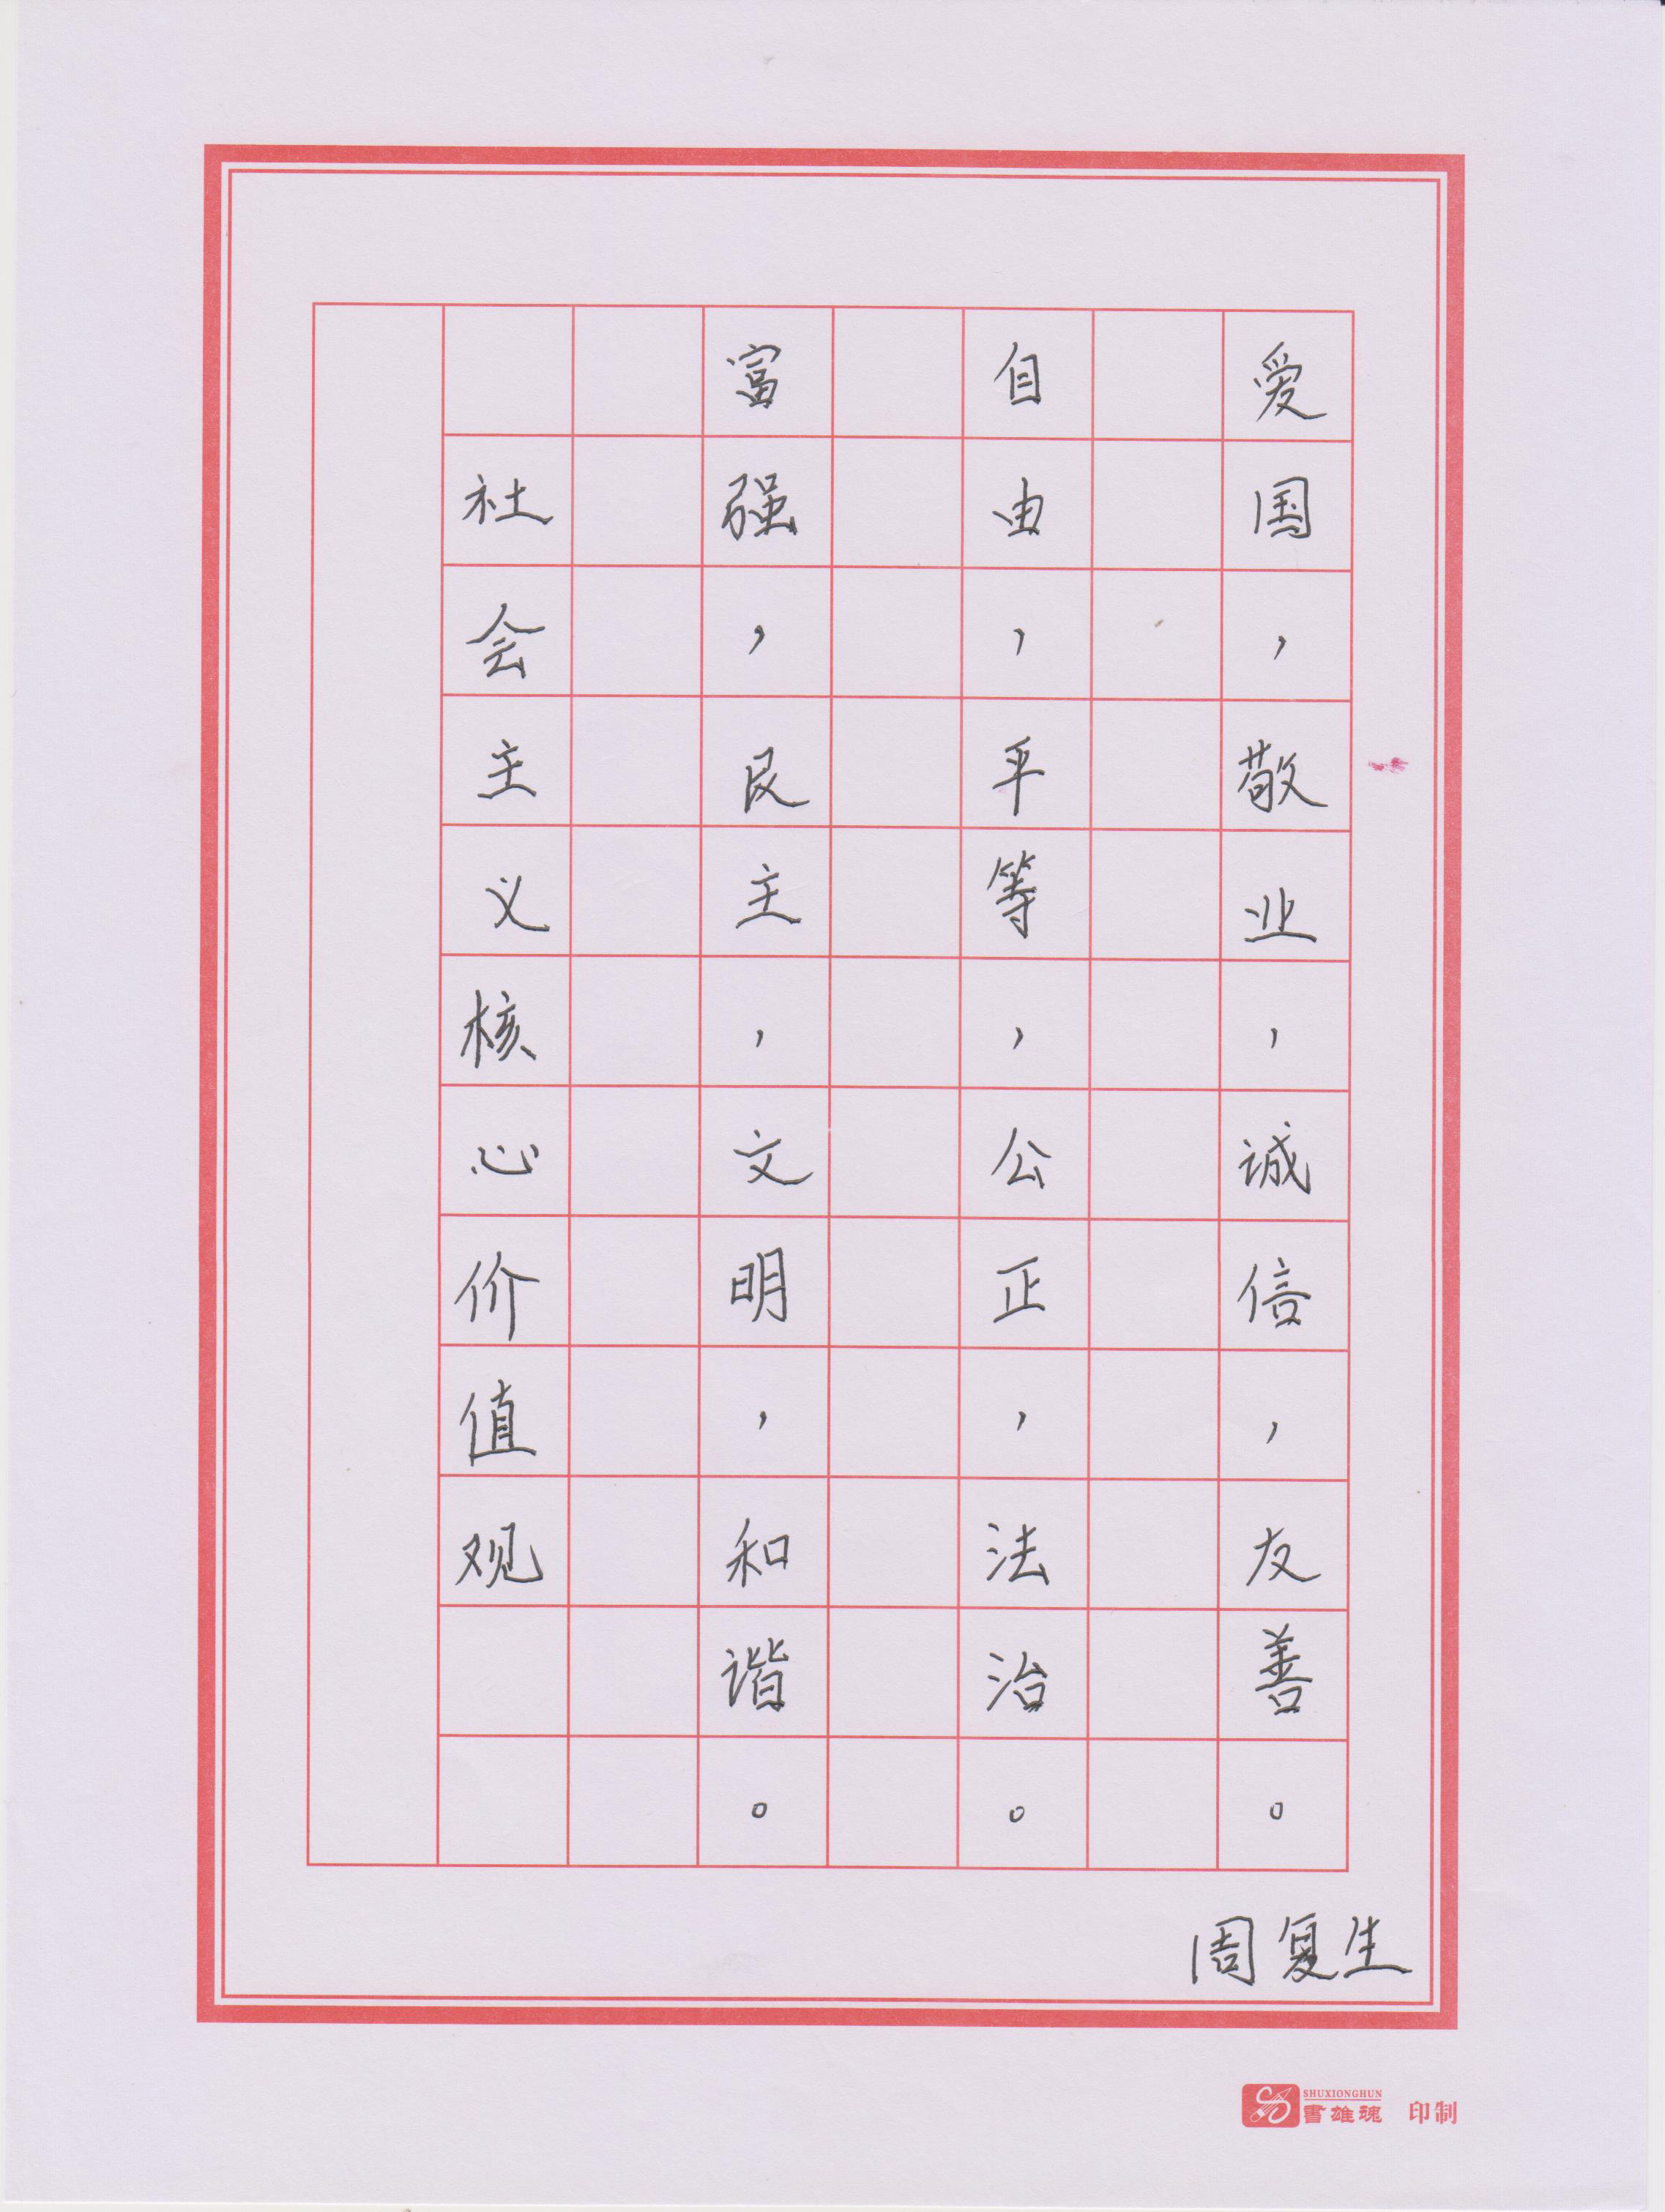 社会主义核心价值观
富强，民主，文明，和谐。
自由，平等，公正，法治。
爱国，敬业，诚信，友善。
周复生
SHUXIONGHUN
書雄魂 印制